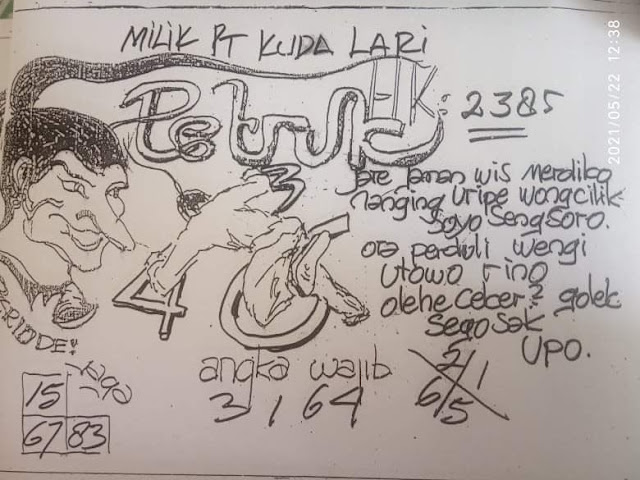 MILIK PT KUDA LARI
HK: 2385
Petruk
jare jaman wis merdiko
nanging Uripe wongcilik
Soyo sengsoro.
ora perduli wengi
Utowo rino
olehe Ceber2 golek
Sego sak
UPO.
3
4 6
RIODE!
angka wajib
3 1 6 4
2/1
6/5
15
67 83
2021/05/22 12:38